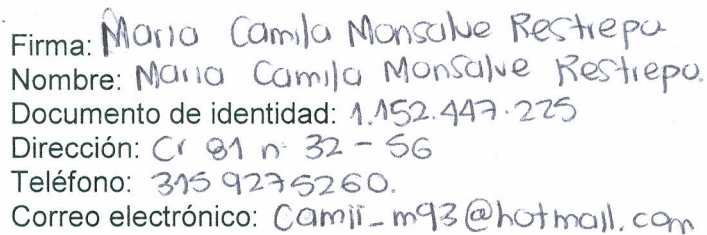 Firma: Maria Camila Monsalve Restrepo
Nombre: Maria Camila Monsalve Restrepo.
Documento de identidad: 1.152.447.225
Dirección: Cr 81 n° 32 - 56
Teléfono: 315 9275260.
Correo electrónico: Camii_m93@hotmail.com